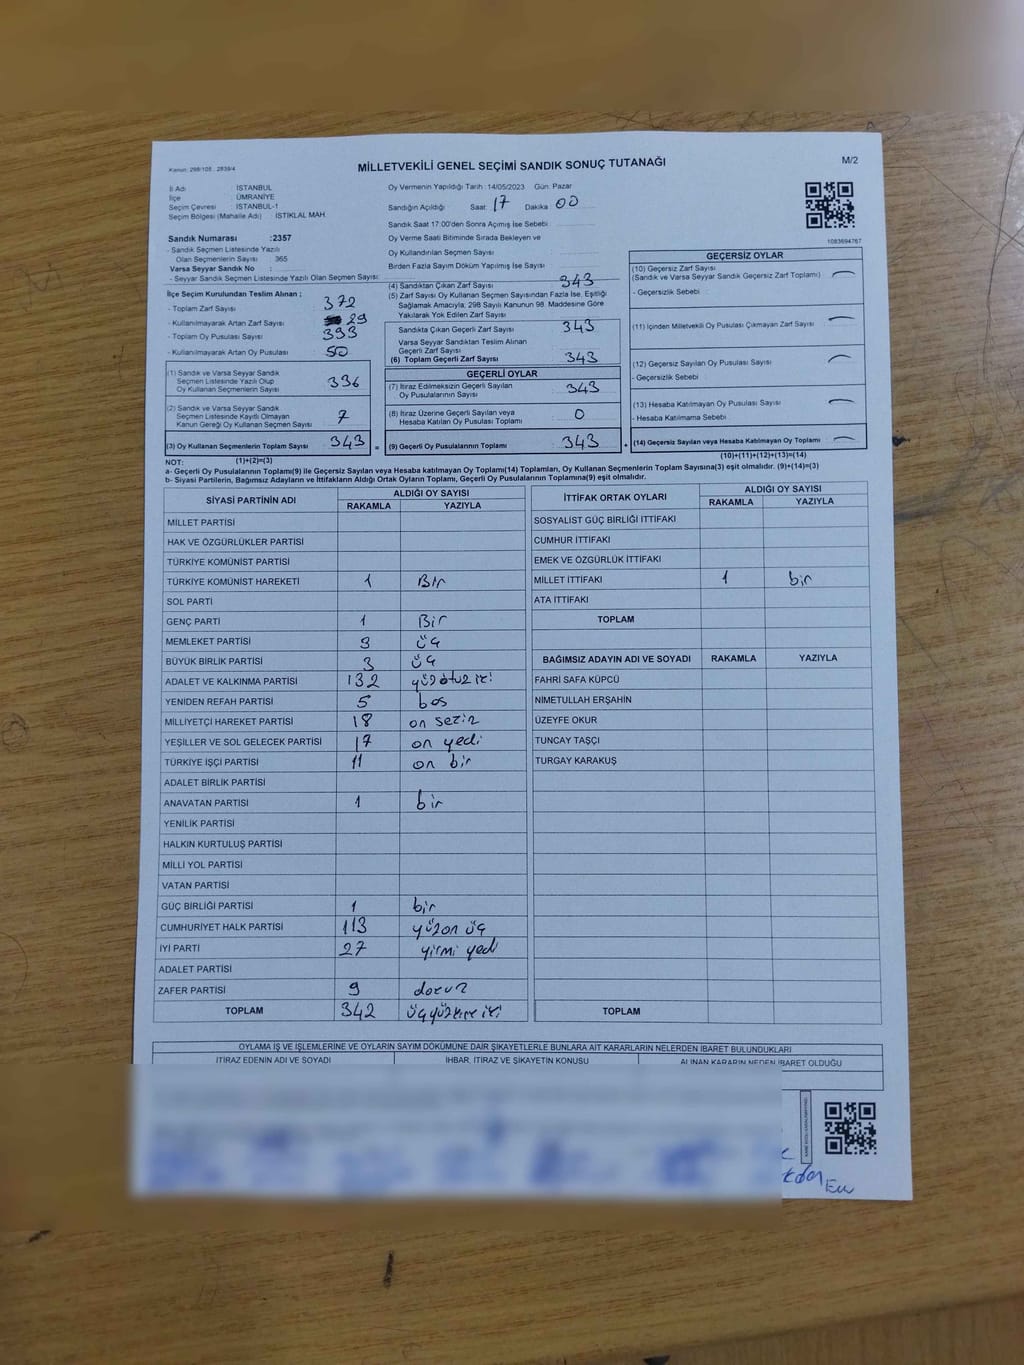 Kanun: 298/105 , 2839/4
MİLLETVEKİLİ GENEL SEÇİMİ SANDIK SONUÇ TUTANAĞI
M/2
İl Adı : İSTANBUL
İlçe : ÜMRANİYE
Seçim Çevresi : İSTANBUL-1
Seçim Bölgesi (Mahalle Adı) : İSTİKLAL MAH.
Sandık Numarası :2357
- Sandık Seçmen Listesinde Yazılı
Olan Seçmenlerin Sayısı : 365
Varsa Seyyar Sandık No :
- Seyyar Sandık Seçmen Listesinde Yazılı Olan Seçmen Sayısı:
Oy Vermenin Yapıldığı Tarih : 14/05/2023 Gün: Pazar
Sandığın Açıldığı : Saat: 17 Dakika 00
Sandık Saat 17:00'den Sonra Açılmış İse Sebebi :
Oy Verme Saati Bitiminde Sırada Bekleyen ve
Oy Kullandırılan Seçmen Sayısı :
Birden Fazla Sayım Döküm Yapılmış İse Sayısı :
1083694767
İlçe Seçim Kurulundan Teslim Alınan ;
- Toplam Zarf Sayısı : 372
- Kullanılmayarak Artan Zarf Sayısı : 29
- Toplam Oy Pusulası Sayısı : 393
- Kullanılmayarak Artan Oy Pusulası : 50
(1) Sandık ve Varsa Seyyar Sandık
Seçmen Listesinde Yazılı Olup
Oy Kullanan Seçmenlerin Sayısı 336
(2) Sandık ve Varsa Seyyar Sandık
Seçmen Listesinde Kayıtlı Olmayan
Kanun Gereği Oy Kullanan Seçmen Sayısı 7
(3) Oy Kullanan Seçmenlerin Toplam Sayısı 343
(4) Sandıktan Çıkan Zarf Sayısı : 343
(5) Zarf Sayısı Oy Kullanan Seçmen Sayısından Fazla İse, Eşitliği
Sağlamak Amacıyla; 298 Sayılı Kanunun 98. Maddesine Göre
Yakılarak Yok Edilen Zarf Sayısı :
Sandıkta Çıkan Geçerli Zarf Sayısı : 343
Varsa Seyyar Sandıktan Teslim Alınan
Geçerli Zarf Sayısı :
(6) Toplam Geçerli Zarf Sayısı : 343
GEÇERLİ OYLAR
(7) İtiraz Edilmeksizin Geçerli Sayılan
Oy Pusulalarının Sayısı : 343
(8) İtiraz Üzerine Geçerli Sayılan veya
Hesaba Katılan Oy Pusulası Toplamı : 0
= (9) Geçerli Oy Pusulalarının Toplamı : 343 +
GEÇERSİZ OYLAR
(10) Geçersiz Zarf Sayısı :
(Sandık ve Varsa Seyyar Sandık Geçersiz Zarf Toplamı)
- Geçersizlik Sebebi :
(11) İçinden Milletvekili Oy Pusulası Çıkmayan Zarf Sayısı :
(12) Geçersiz Sayılan Oy Pusulası Sayısı :
- Geçersizlik Sebebi :
(13) Hesaba Katılmayan Oy Pusulası Sayısı :
- Hesaba Katılmama Sebebi :
(14) Geçersiz Sayılan veya Hesaba Katılmayan Oy Toplamı :
NOT: (1)+(2)=(3)
(10)+(11)+(12)+(13)=(14)
a- Geçerli Oy Pusulalarının Toplamı(9) ile Geçersiz Sayılan veya Hesaba katılmayan Oy Toplamı(14) Toplamları, Oy Kullanan Seçmenlerin Toplam Sayısına(3) eşit olmalıdır. (9)+(14)=(3)
b- Siyasi Partilerin, Bağımsız Adayların ve İttifakların Aldığı Ortak Oyların Toplamı, Geçerli Oy Pusulalarının Toplamına(9) eşit olmalıdır.
SİYASİ PARTİNİN ADI ALDIĞI OY SAYISI
RAKAMLA YAZIYLA
MİLLET PARTİSİ
HAK VE ÖZGÜRLÜKLER PARTİSİ
TÜRKİYE KOMÜNİST PARTİSİ
TÜRKİYE KOMÜNİST HAREKETİ 1 Bir
SOL PARTİ
GENÇ PARTİ 1 Bir
MEMLEKET PARTİSİ 3 üç
BÜYÜK BİRLİK PARTİSİ 3 üç
ADALET VE KALKINMA PARTİSİ 132 yüzotuz iki
YENİDEN REFAH PARTİSİ 5 beş
MİLLİYETÇİ HAREKET PARTİSİ 18 on sekiz
YEŞİLLER VE SOL GELECEK PARTİSİ 17 on yedi
TÜRKİYE İŞÇİ PARTİSİ 11 on bir
ADALET BİRLİK PARTİSİ
ANAVATAN PARTİSİ 1 bir
YENİLİK PARTİSİ
HALKIN KURTULUŞ PARTİSİ
MİLLİ YOL PARTİSİ
VATAN PARTİSİ
GÜÇ BİRLİĞİ PARTİSİ 1 bir
CUMHURİYET HALK PARTİSİ 113 yüzon üç
İYİ PARTİ 27 yirmi yedi
ADALET PARTİSİ
ZAFER PARTİSİ 9 dokuz
TOPLAM 342 üçyüzkırk iki
İTTİFAK ORTAK OYLARI ALDIĞI OY SAYISI
RAKAMLA YAZIYLA
SOSYALİST GÜÇ BİRLİĞİ İTTİFAKI
CUMHUR İTTİFAKI
EMEK VE ÖZGÜRLÜK İTTİFAKI
MİLLET İTTİFAKI 1 bir
ATA İTTİFAKI
TOPLAM
BAĞIMSIZ ADAYIN ADI VE SOYADI RAKAMLA YAZIYLA
FAHRİ SAFA KÜPCÜ
NİMETULLAH ERŞAHİN
ÜZEYFE OKUR
TUNCAY TAŞÇI
TURGAY KARAKUŞ
TOPLAM
OYLAMA İŞ VE İŞLEMLERİNE VE OYLARIN SAYIM DÖKÜMÜNE DAİR ŞİKAYETLERLE BUNLARA AİT KARARLARIN NELERDEN İBARET BULUNDUKLARI
İTİRAZ EDENİN ADI VE SOYADI İHBAR, İTİRAZ VE ŞİKAYETİN KONUSU ALINAN KARARIN NEDEN İBARET OLDUĞU